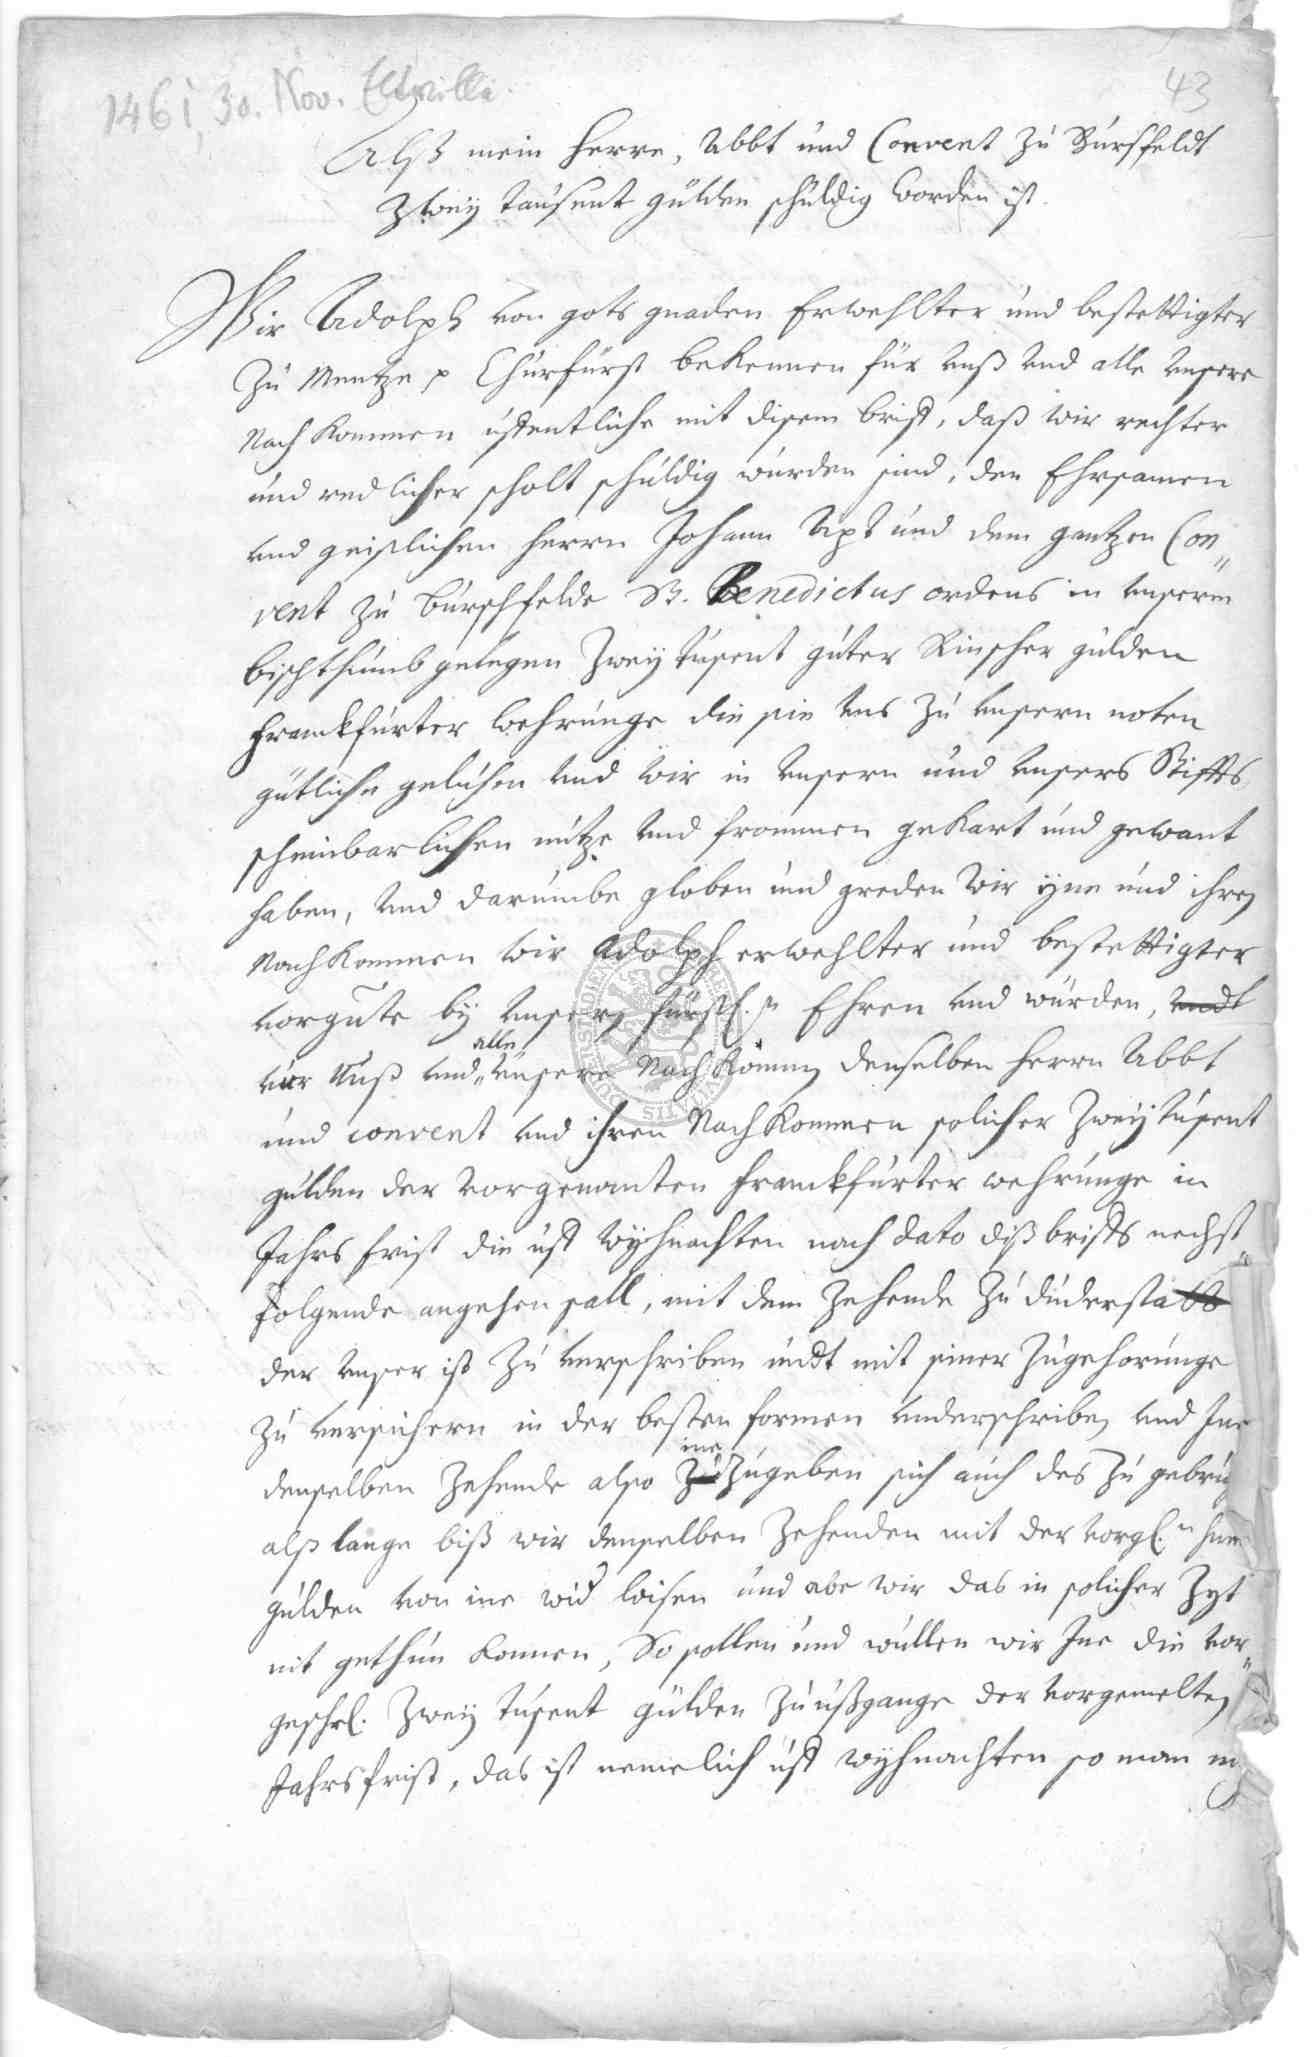 1461, 30. Nov. Eltville
43
Alß mein Herre, Abbt und Convent zu Bursfeldt
Zwey tausent gulden schuldig worden ist.
Wir Adolph von gots gnaden Erwehlter und bestettigter
Zu Mentze p Churfurst bekennen für unß und alle unsere
Nachkommen uffentliche mit disem briff, daß wir rechter
und redlicher scholt schuldig wurden sind, den Ehrsamen
und geistlichen Herrn Johann Apt und dem gantzen Con„
vent zu Burschfelde St. Benedictus ordens in unserm
bischthumb gelegen Zwey tusent guter Rinscher gulden
Franckfurter wehrunge die sie uns zu unsern noten
gutlichen geluhen und wir in unsern und unsers Stiffts
scheinbarlichen nutze und frommen gekart und gewant
haben, und darumbe globen und greden wir yne und ihren
Nachkommen wir Adolph erwehlter und bestettigter
vorgute by unsern fürstl.n Ehren und würden, undt
vur unß und„ alle unsere Nachkomm denselben Herrn Abbt
und convent und ihren Nachkommen solicher Zwey tusent
gulden der vorgenanten Franckfurter wehrunge in
Jahrs frist die uff wyhnachten nach dato diß briffs nechst„
folgende angehen sall, mit dem Zehende zu duderstatt
der unser ist zu verschriben undt mit siner Zugehorunge
zu versichern in der besten formen underschriben und Ine
denselben Zehende also zu ine Zugeben sich auch des zu gebru
alß lange biß wir denselben Zehenden mit der vorgl.n
gulden von ine wid loisen und abe wir das in solicher Zyt
nit gethun konnen, So sollen und wullen wir Ine die vor„
geschrl. Zwey tusent gulden zu ußgange der vorgemelten
Jahrs frist, das ist nemelich uff wyhnachten so man